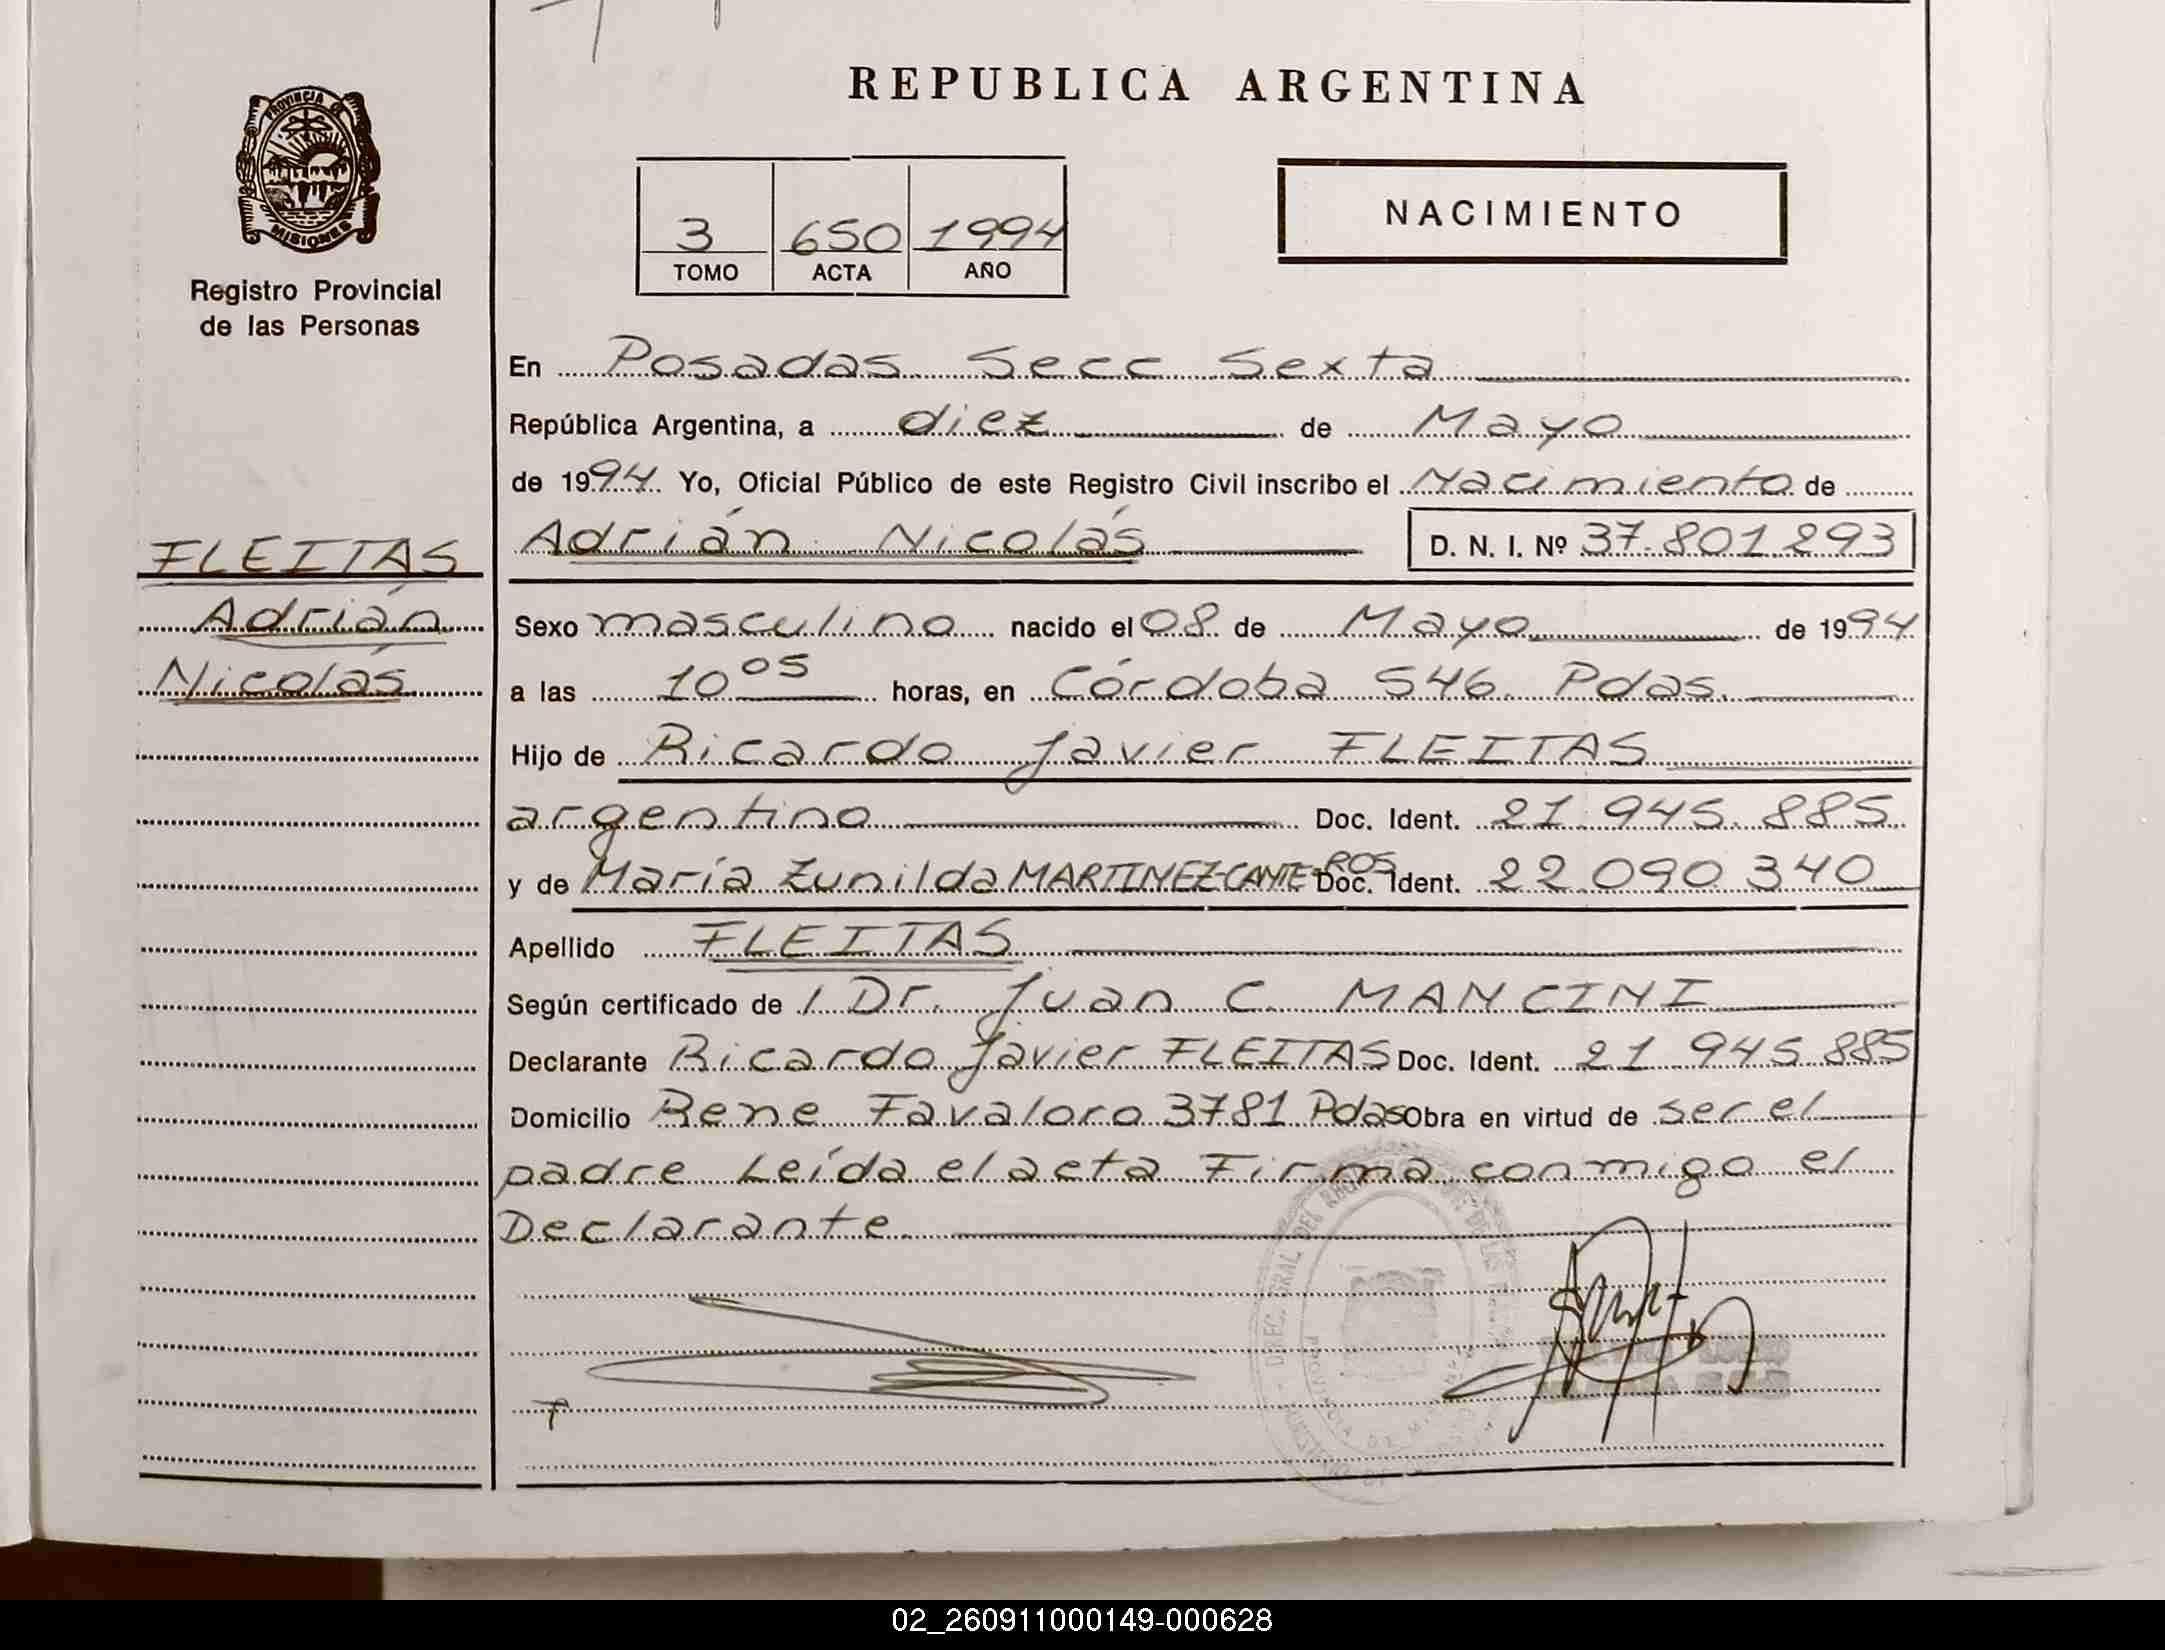 REPUBLICA ARGENTINA
PROVINCIA DE
MISIONES
Registro Provincial
de las Personas
3 650 1994
TOMO ACTA AÑO
NACIMIENTO
En Posadas Secc Sexta
República Argentina, a diez de Mayo
de 1994. Yo, Oficial Público de este Registro Civil inscribo el Nacimiento de
Adrián Nicolás D. N. I. Nº 37.801.293
FLEITAS
Adrián
Nicolás
Sexo masculino nacido el 08 de Mayo de 1994
a las 10 05 horas, en Córdoba 546 Pdas.
Hijo de Ricardo Javier FLEITAS
argentino Doc. Ident. 21.945.885
y de María Zunilda MARTINEZ-CANTEROS Doc. Ident. 22.090.340
Apellido FLEITAS
Según certificado de / Dr. Juan C. MANCINI
Declarante Ricardo Javier FLEITAS Doc. Ident. 21 945.885
Domicilio Rene Favaloro 3781 Pdas Obra en virtud de ser el
padre Leída el acta Firma conmigo el
Declarante.
DIREC. GRAL. DEL
02_260911000149-000628